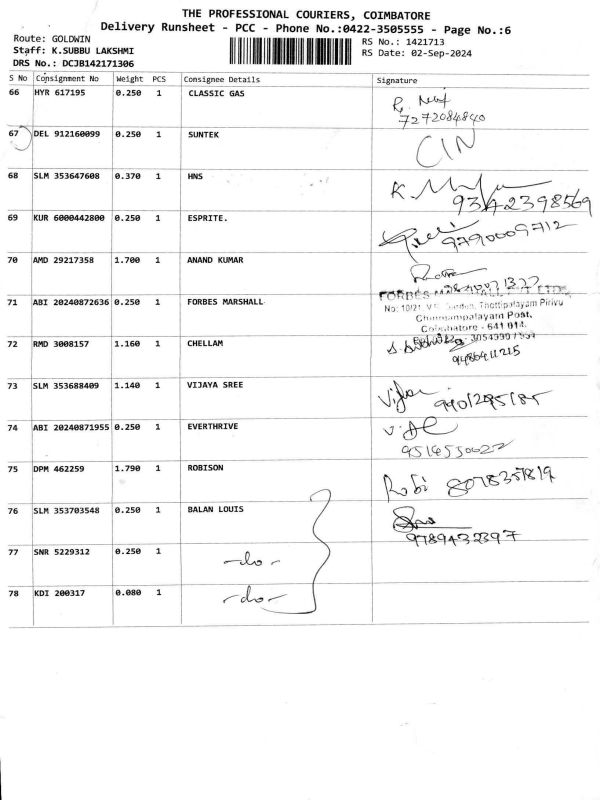 THE PROFESSIONAL COURIERS, COIMBATORE
Delivery Runsheet - PCC - Phone No.:0422-3505555 - Page No.:6
Route: GOLDWIN
Staff: K.SUBBU LAKSHMI
DRS No.: DCJB142171306
RS No.: 1421713
RS Date: 02-Sep-2024
S No Consignment No Weight PCS Consignee Details Signature
66 HYR 617195 0.250 1 CLASSIC GAS
7272084840
67 DEL 912160099 0.250 1 SUNTEK CIN
68 SLM 353647608 0.370 1 HNS K.
9342398569
69 KUR 6000442800 0.250 1 ESPRITE.
9790009712
70 AMD 29217358 1.700 1 ANAND KUMAR
71 ABI 20240872636 0.250 1 FORBES MARSHALL
FORBES MARSHALL PVT LTD.
Thottipalayam Pirivu
Chinniampalayam Post,
Coimbatore - 641 014.
72 RMD 3008157 1.160 1 CHELLAM
9486411215
73 SLM 353688409 1.140 1 VIJAYA SREE
9901295185
74 ABI 20240871955 0.250 1 EVERTHRIVE
75 DPM 462259 1.790 1 ROBISON Robi 8078357819
76 SLM 353703548 0.250 1 BALAN LOUIS
9789432397
77 SNR 5229312 0.250 1 -do-
78 KDI 200317 0.080 1 -do-